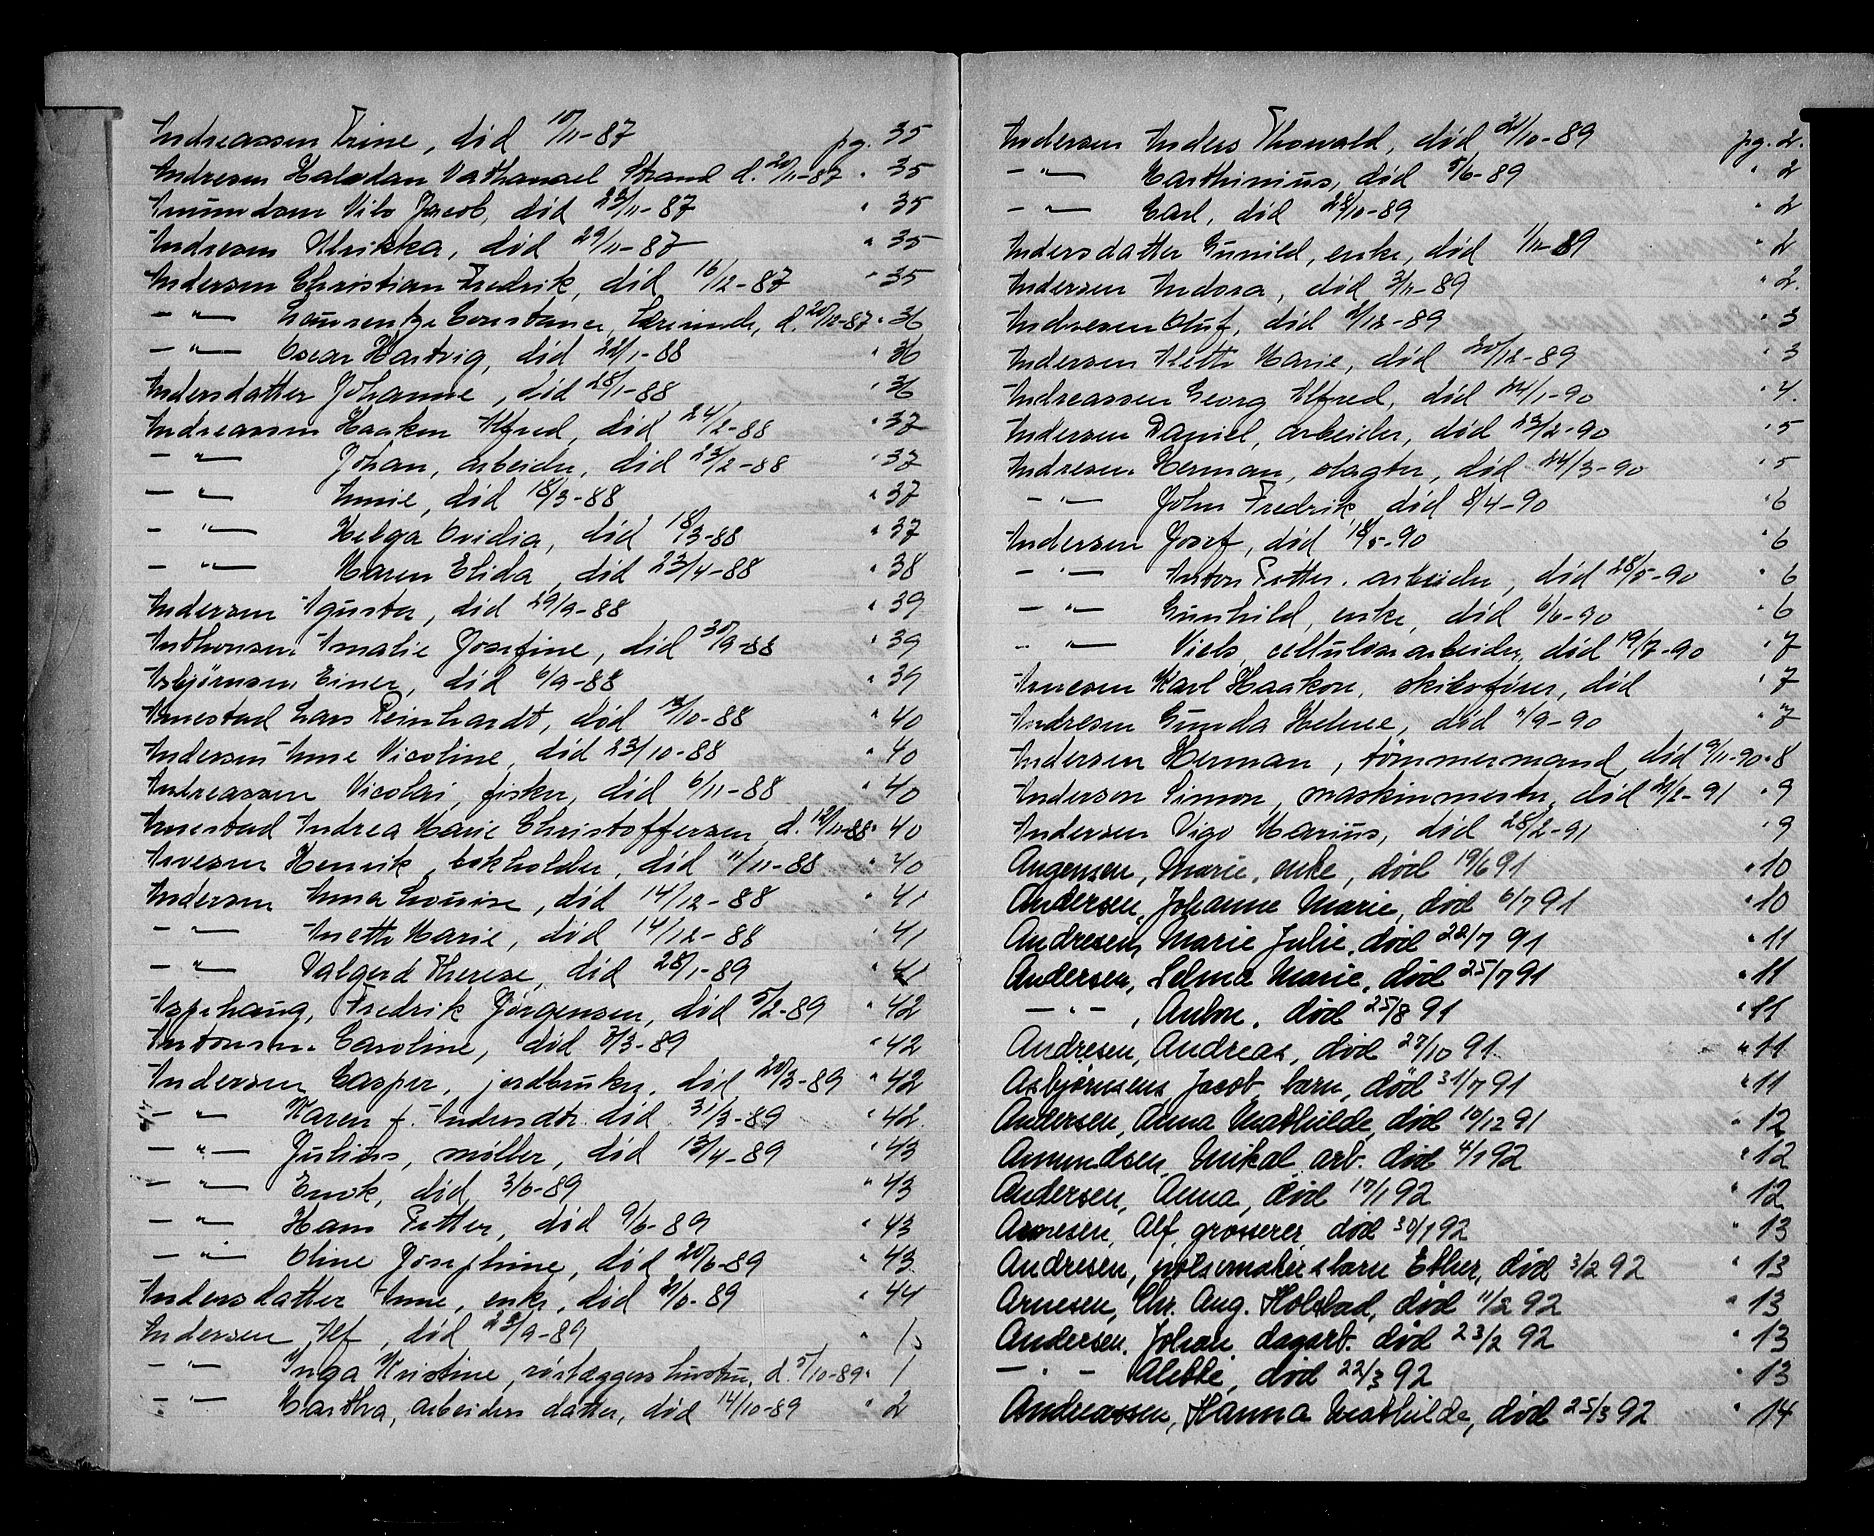 Andreassen Trine, død 10/11-87 pg. 35
Andresen Halvdan Nathanael Strand d. 20/11-87 " 35
Amundsen Nils Jacob, død 23/11-87 " 35
Andresen Ulrikka, død 29/11-87 " 35
Andersen Christian Fredrik, død 16/12-87 " 35
— " — Laurentze Constance, d. 20/12-87 " 36
— " — Oscar Hartvig, død 22/1-88 " 36
Andersdatter Johanne, død 28/1-88 " 36
Andreassen Haakon Alfred, død 24/2-88 " 37
— " — Johan, arbeider, død 23/2-88 " 37
— " — Annie, død 18/3-88 " 37
— " — Helga Ovidia, død 18/3-88 " 37
— " — Maren Elida, død 23/4-88 " 38
Andersen Agusta, død 29/9-88 " 39
Anthonsen Amalie Josefine, død 30/9-88 " 39
Asbjørnsen Einer, død 6/9-88 " 39
Amestad Lars Reinhardt, død 12/10-88 " 40
Andersen Anne Nicoline, død 23/10-88 " 40
Andreassen Nicolai, fisker, død 6/11-88 " 40
Amestad Andrea Marie Christoffersen d. 12/11-88 " 40
Arvesen Henrik, bokholder, død 11/11-88 " 40
Andersen Anna Louise, død 14/12-88 " 41
— " — Anette Marie, død 14/12-88 " 41
— " — Valgerd Therese, død 28/1-89 " 41
Aspehaug, Fredrik Jørgensen, død 5/2-89 " 42
Antonsen Caroline, død 7/3-89 " 42
Andersen Casper, jordbruker, død 20/3-89 " 42
— " — Karen f. Andersdtr. død 31/3-89 " 42
— " — Julius, møller, død 13/4-89 " 43
— " — Enok, død 3/6-89 " 43
— " — Hans Petter, død 9/6-89 " 43
— " — Oline Josephine, død 20/6-89 " 43
Andersdatter Anne, enke, død 21/6-89 " 44
Andersen Alf, død 23/9-89 " 1
— " — Inga Kristine, hustru, d. 5/10-89 " 1
— " — Martha, arbeiders datter, død 14/10-89 " 2
Andersen Anders Thorvald, død 21/10-89 pg. 2.
— " — Marthinius, død 5/6-89 " 2
— " — Carl, død 28/10-89 " 2
Andersdatter Gunild, enke, død 1/11-89 " 2
Andersen Andora, død 3/11-89 " 2.
Andresen Oluf, død 2/12-89 " 3
Andersen Alette Marie, død 20/12-89 " 3
Andreassen Georg Alfred, død 24/1-90 " 4.
Andersen Daniel, arbeider, død 23/2-90 " 5
Andresen Herman, slagter, død 24/3-90 " 5
— " — John Fredrik, død 8/4-90 " 6
Andersen Josef, død 18/5-90 " 6
— " — Anton Petter, arbeider, død 28/5-90 " 6
— " — Gunhild, enke, død 6/6-90 " 6
— " — Niels, cellulosearbeider, død 19/7-90 " 7
Arnesen Karl Haakon, skibsfører, død " 7
Andresen Gunda Helene, død 11/9-90 " 7
Andersen Herman, tømmermand, død 9/11-90 " 8
Anderson Simon, maskinmester, død 21/2-91 " 9
Andersen Vigo Marius, død 28/2-91 " 9
Angensen, Marie, enke, død 19/6 91 " 10
Andersen, Johanne Marie, død 6/7 91 " 10
Andresen, Marie Julie, død 22/7 91 " 11
Andersen, Selma Marie, død 25/7 91 " 11
— " —, Anton, død 25/8 91 " 11
Andresen, Andreas, død 27/10 91 " 11
Asbjørnsens, Jacob, barn, død 31/7 91 " 11
Andersen, Anna Mathilde, død 10/12 91 " 12
Amundsen, Mikal arb. død 4/1 92 " 12
Andersen, Anna, død 17/1 92 " 12
Arnesen, Alf grosserer, død 30/1 92 " 13
Andresen, pølsemakers barn Ether, død 3/2 92 " 13
Arnesen, Chr. Aug. Holstad, død 11/2 92 " 13
Andersen, Johan dagarb. død 23/2 92 " 13
— " — Alette, død 22/3 92 " 13
Andreassen, Hanna Mathilde, død 25/3 92 " 14